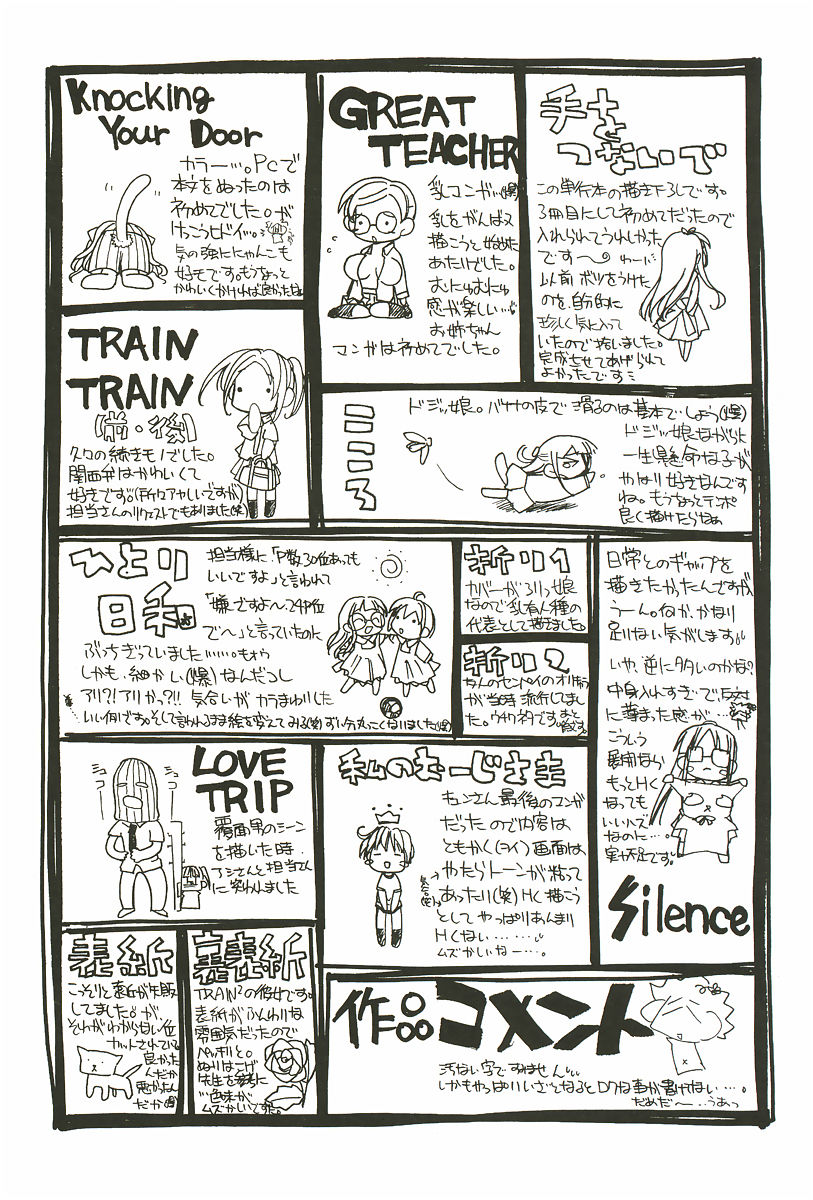 Knocking
Your Door
カラー…。PCで
本文をぬったのは
初めてでした。が
けっこうヒドイ…。
気の強いにゃんこも
好きです。もうちょっと
かわいくかければ良かったな
GREAT
TEACHER
乳コンガ…(爆)
乳をがんばって
描こうと始めた
あたりでした。
むにゅむにゅ
感が楽しい…
お姉ちゃん
マンガは初めてでした。
手を
つないで
この単行本の描き下ろしです。
3冊目にして初めてだったので
入れられてうれしかった
です〜
わーい
以前ボツをうけた
のを、自分的に
珍しく気に入って
いたので拾いました。
完成させてあげられて
よかったです
TRAIN
TRAIN
(前・後)
久々の続きモノでした。
関西弁はかわいくて
好きです。
担当さんのリクエストでもありました(笑)
こころ
ドジッ娘。バナナの皮で滑るのは基本でしょう(爆)
ドジッ娘ながらも
一生懸命な子が
かなり好きなんです
ね。もうちょっとテンポ
良く描けたらなぁ
ひとり
日和
担当様に「P数30位あっても
いいですよ」と言われて
「嫌ですよ〜24P位
で〜」と言っていたのに
ぶっちぎっていました……。もぉぅ
しかも、細かい(爆)なんだコレ
アリ?!アリかっ?!! 気合いがカラまわりした
いい例です。そして言われるまま絵を変えてみる(笑)ずい分丸っこくなりました(爆)
折り1
カバーがろりっ娘
なので乳有人種の
代表として描きました。
折り2
が当時流行してまし
た。
日常とのギャップを
描きたかったんですが
うーん。何か、かなり
足りない気がします。
いや、逆に多いのかな?
中身入れすぎで反対
に薄まった感が…
こういう
最初なら
もっとHく
なっても
いいハズ
なのに…。
Silence
LOVE
TRIP
シュコー
シュコー
覆面男のシーン
を描いた時
アシさんと担当さん
に笑われました
私のおーじさま
キュンさん最後のマンガ
だったので内容は
ともかく(コイ)画面は
やたらトーンが粘って
あったり(笑)Hく描こう
としてやっぱりあんまり
Hくない……
ムズかしいなー…。
表紙
こっそりと表紙が失敗
してました。が
それがわからない位
カットされていて
良かった
んだか
悪かったん
だか(爆)
裏表紙
TRAIN²の彼女です。
表紙がふんわりな
雰囲気だったので
ペッキリと。
ぬりはこげ
先生を参考に
…色味が
ムズかしいです。
作品コメント
汚ない字ですみません
しかもやっぱりいざとなるとロクな事が書けない…。
だめだ〜…うあっ